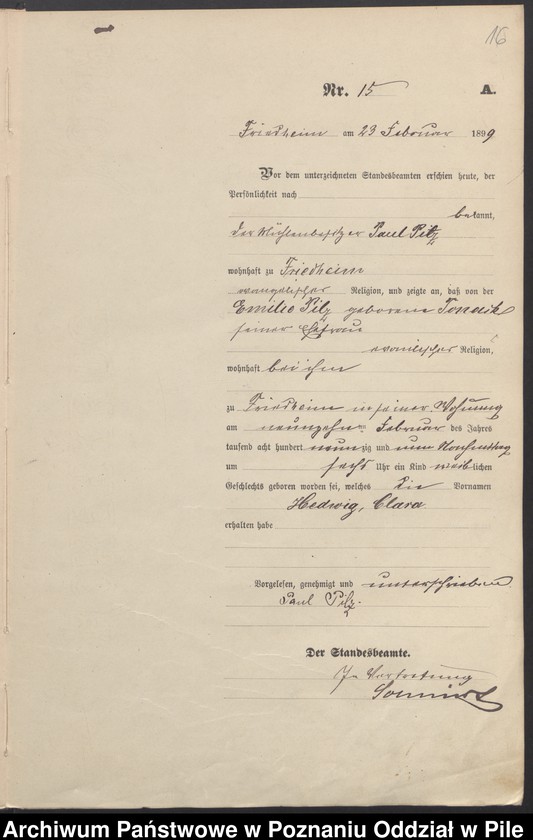 16
Nr. 15 A.
Friedheim am 23 Februar 1899
Vor dem unterzeichneten Standesbeamten erschien heute, der
Persönlichkeit nach
bekannt,
der Mühlenbesitzer Paul Pilz
wohnhaft zu Friedheim
evangelischer Religion, und zeigte an, daß von der
Emilie Pilz geborene
seiner Ehefrau
evanglischer Religion,
wohnhaft bei ihm
zu Friedheim in seiner Wohnung
am neunzehn Februar des Jahres
tausend acht hundert neunzig und neun Nachmittag
um sechs Uhr ein Kind weiblichen
Geschlechts geboren worden sei, welches die Vornamen
Hedwig, Clara
erhalten habe
Vorgelesen, genehmigt und unterschrieben
Paul Pilz.
Der Standesbeamte.
In Vertretung
Archiwum Państwowe w Poznaniu Oddział w Pile